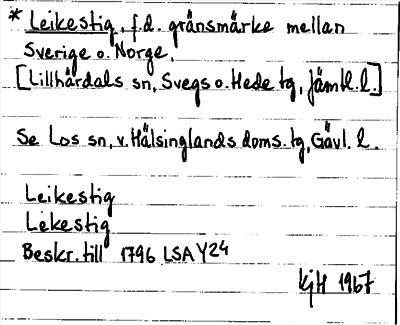 * Leikestig, f.d. gränsmärke mellan
Sverige o. Norge.
[Lillhärdals sn, Svegs o. Hede tg, Jämtl. l.]
Se Los sn, v. Hälsinglands doms. tg, Gävl. l.
Leikestig
Lekestig
Beskr. till 1796 LSA Y24
KjH 1967